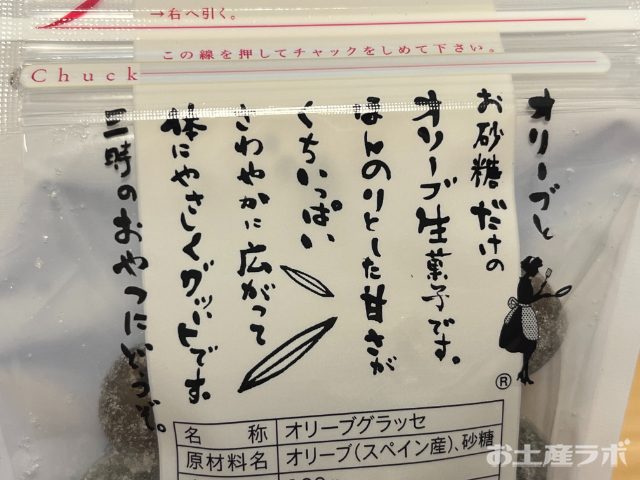 →右へ引く。
この線を押してチャックをしめて下さい。
Chuck
オリーブと
お砂糖だけの
オリーブ生菓子です。
ほんのりとした甘さが
くちいっぱい
さわやかに広がって
体にやさしくグッドです。
三時のおやつにどうぞ。
®
名称 オリーブグラッセ
原材料名 オリーブ(スペイン産)、砂糖
お土産ラボ